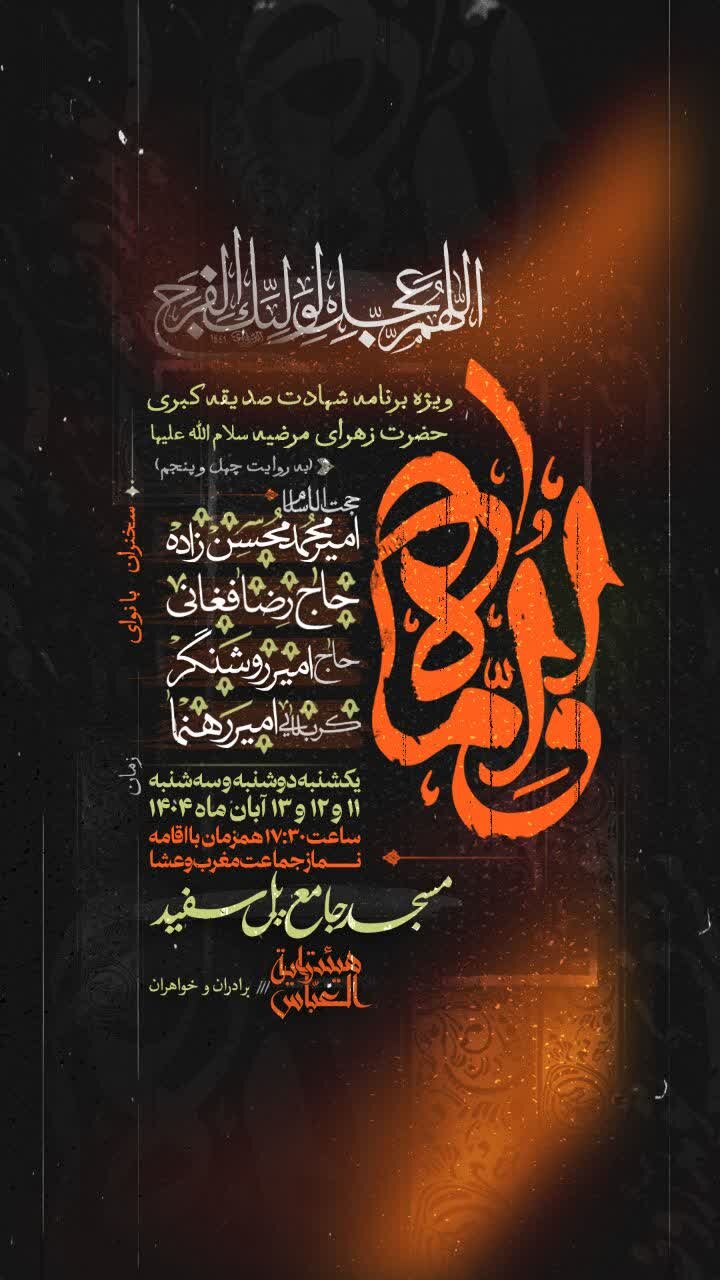 اللهم عجل لولیک الفرج
وا اماه
ویژه برنامه شهادت صدیقه کبری
حضرت زهرای مرضیه سلام الله علیها
(به روایت چهل و پنجم)
سخنران
حجت الاسلام
امیرمحمد محسن زاده
با نوای
حاج رضا فغانی
حاج امیر روشنگر
کربلایی امیر رهنما
زمان
یکشنبه دوشنبه و سه شنبه
۱۱ و ۱۲ و ۱۳ آبان ماه ۱۴۰۴
ساعت ۱۷:۳۰ همزمان با اقامه
نماز جماعت مغرب و عشا
مسجد جامع پل سفید
العباس
/// برادران و خواهران